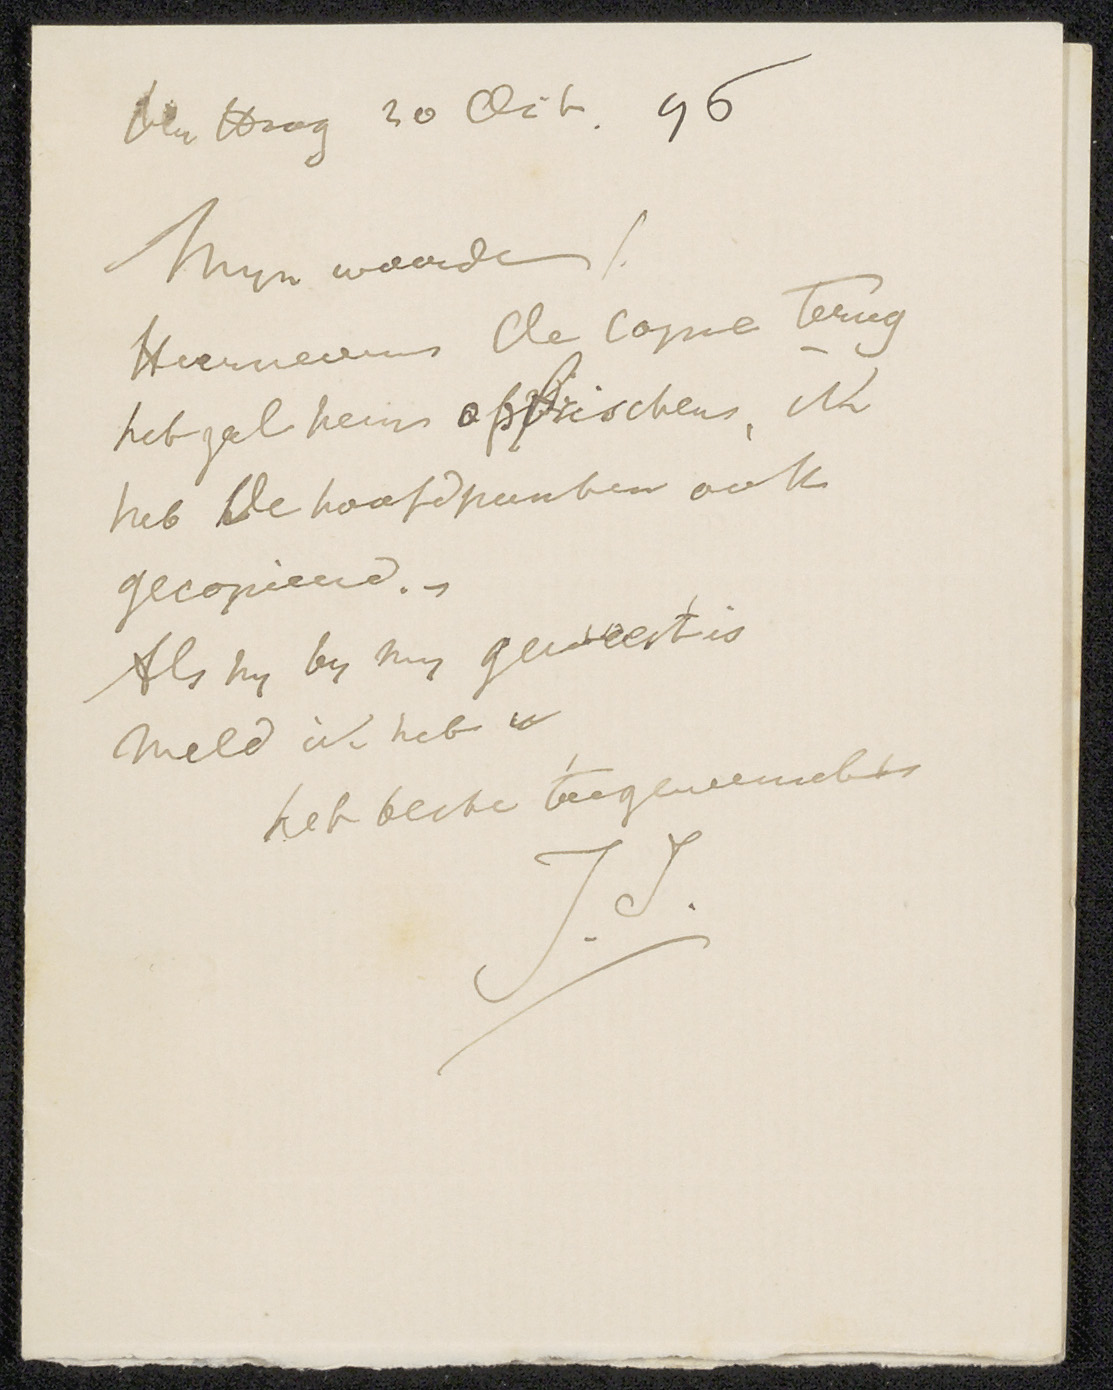 den Haag 20 Oct. 96
Mijn waarde!
Hiernevens de copie terug
het zal hem opfrisschen, ik
heb de hoofdpunten ook
gecopieerd. –
Als hij bij mij geweest is
meld ik het u
het beste toegewenscht
J.I.